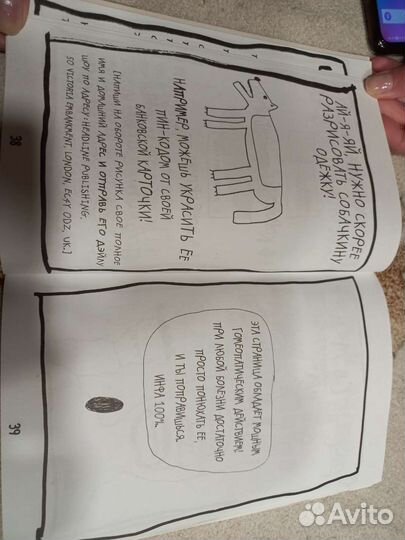 АЙ-Я-ЯЙ, НУЖНО СКОРЕЕ
РАЗРИСОВАТЬ СОБАЧКИНУ
ОДЁЖКУ!
НАПРИМЕР, МОЖЕШЬ УКРАСИТЬ ЕЁ
ПИН-КОДОМ ОТ СВОЕЙ
БАНКОВСКОЙ КАРТОЧКИ!
[НАПИШИ НА ОБОРОТЕ РИСУНКА СВОЁ ПОЛНОЕ
ИМЯ И ДОМАШНИЙ АДРЕС И ОТПРАВЬ ЕГО ДЭЙЛУ
ШОУ ПО АДРЕСУ: HEADLINE PUBLISHING,
50 VICTORIA EMBANKMENT, LONDON, EC4Y 0DZ, UK.]
38
ЭТА СТРАНИЦА ОБЛАДАЕТ МОЩНЫМ
ГОМЕОПАТИЧЕСКИМ ДЕЙСТВИЕМ!
ПРИ ЛЮБОЙ БОЛЕЗНИ ДОСТАТОЧНО
ПРОСТО ПОНЮХАТЬ ЕЁ,
И ТЫ ПОПРАВИШЬСЯ.
ИНФА 100%.
39
Avito